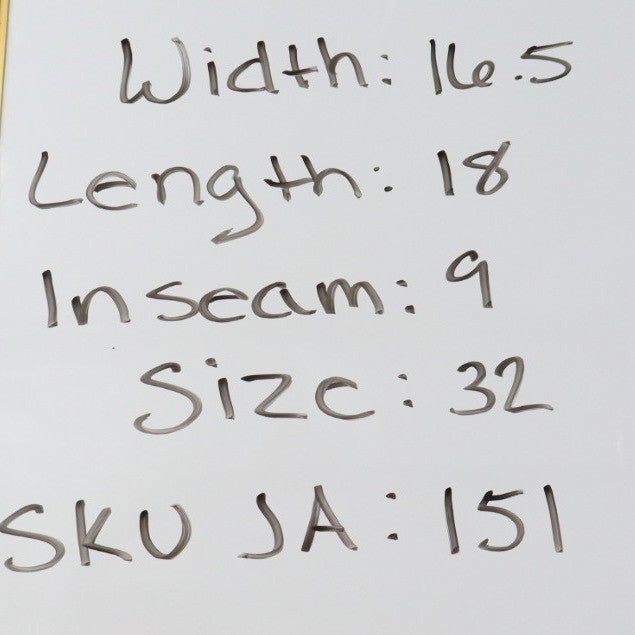 Width: 16.5
Length: 18
Inseam: 9
Size: 32
SKU JA: 151